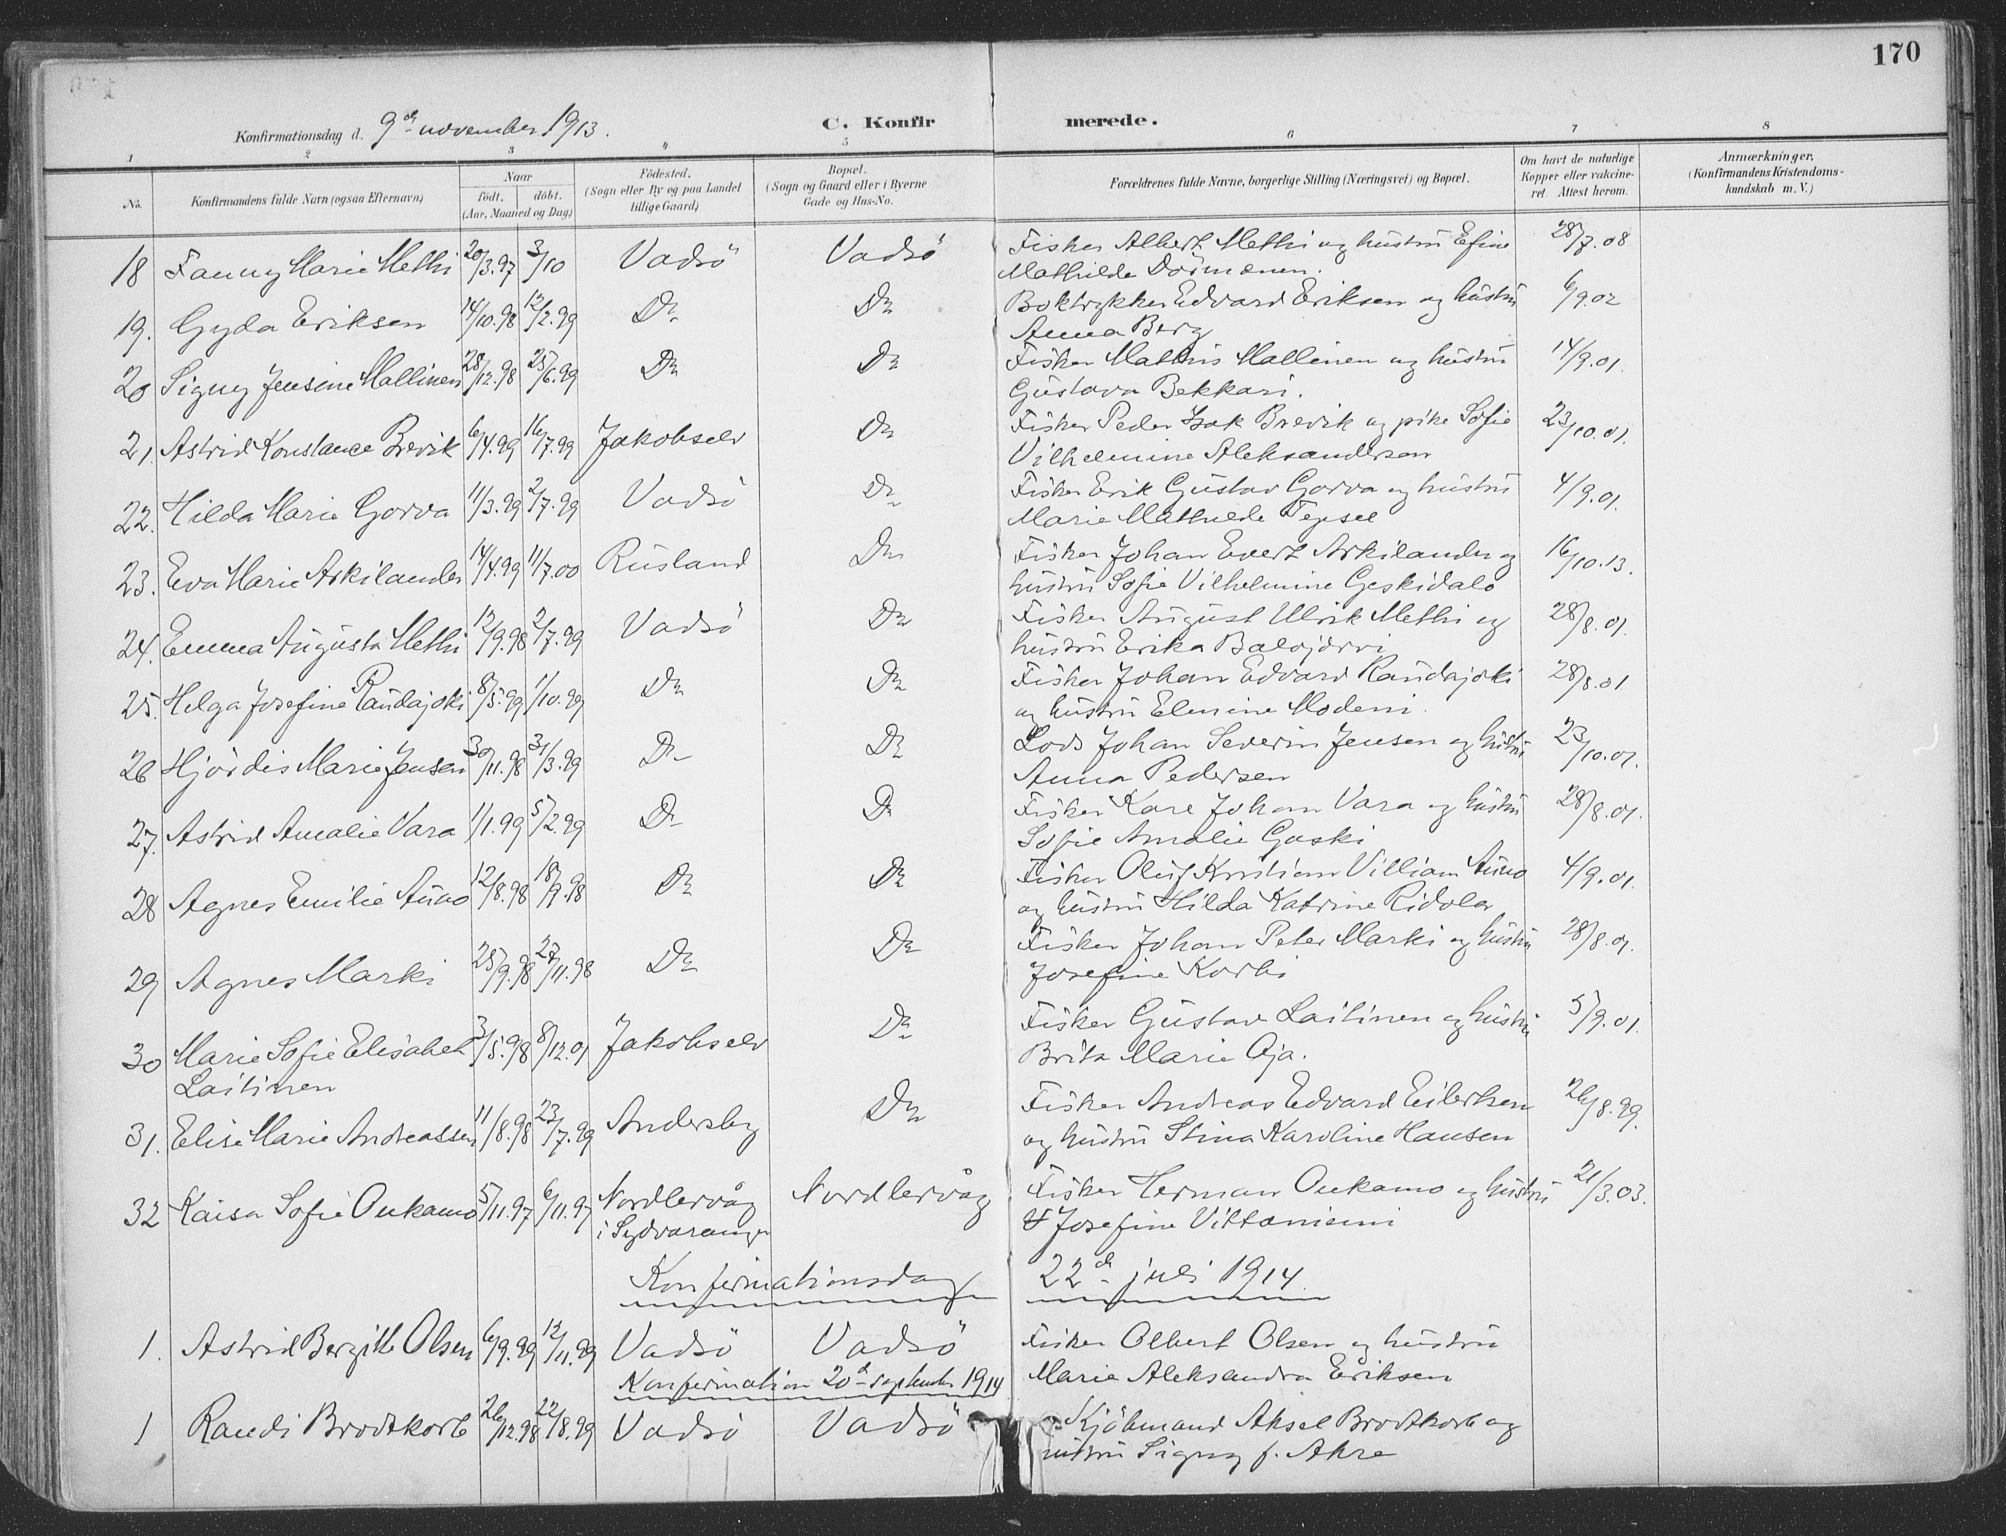 170
Konfirmationsdag d. 9de november 1913. C. Konfirmerede.
1 2 3 4 5 6 7 8
No. Konfirmandens fulde Navn (ogsaa Efternavn) Naar födt. döbt. (Aar, Maaned og Dag) Födested. (Sogn eller By og paa Landet tillige Gaard) Bopæl. (Sogn og Gaard eller i Byerne Gade og Hus-No. Forældrenes fulde Navne, borgerlige Stilling (Næringsvei) og Bopæl. Om havt de naturlige Kopper eller vakcineret. Attest herom. Anmærkninger, (Konfirmandens Kristendomskundskab m. V.)
18 Fanny Marie Methi 20/3.97 3/10 Vadsö Vadsö Fisker Albert Methi og hustru Efine 28/7.08
Mathilde Dörmænen.
19. Gyda Eriksen 14/10.98 12/2.99 Do Do Boktrykker Edvard Eriksen og hustru 6/9.02
Anna Berg
20 Signy Jensine Mallinen 28/12.98 25/6.99 Do Do Fisker Mathis Mallinen og hustru 14/9.01.
Gustava Bekkari.
21. Astrid Konstance Brevik 6/4.99 16/7.99 Jakobselv Do Fisker Peder Isak Brevik og pike Sofie 23/10.01.
Vilhelmine Aleksandersen
22. Hilda Marie Gorva 11/3.99 2/7.99 Vadsö Do Fisker Erik Gustav Gorva og hustru 4/9.01.
Marie Mathilde
23. Eva Marie Askilander 14/4.99 11/7.00 Rusland Do Fisker Johan Evert Askilander og 16/10.13.
hustru Sofie Vilhelmine Geskidalo
24. Emma Augusta Methi 12/9.98 2/7.99 Vadsö Do Fisker August Ulrik Methi og 28/8.01.
hustru Erika Balojärvi
25. Helga Josefine Randajoki 8/5.99 1/10.99 Do Do Fisker Johan Edvard Randajoki 28/8.01
og hustru Elenine Modeni.
26 Hjördis Marie Jensen 30/11.98 31/3.99 Do Do Lods Johan Severin Jensen og hustru 23/10.01.
Anna Pedersen
27. Astrid Amalie Vara 1/1.99 5/2.99 Do Do Fisker Kare Johan Vara og hustru 28/8.01.
Sofie Amalie Gaski
28 Agnes Emilie Auno 12/8.98 18/9.98 Do Do Fisker Oluf Kristian Villiam Auno 4/9.01.
og hustru Hilda Katrine Ridola
29 Agnes Marki 25/9.98 27/11.98 Do Do Fisker Johan Peter Marki og hustru 28/8.01.
Josefine Korbi
30 Marie Sofie Elisabet 3/5.98 8/12.01 Jakobselv Do Fisker Gustav Laitinen og hustru 5/9.01.
Laitinen Brita Marie Oja.
31. Elise Marie Andreassen 11/8.98 23/7.99 Andersby Do Fisker Andreas Edvard Eilertsen 26/8.99.
og hustru Stina Karoline Hansen
32 Kaisa Sofie Oukamo 5/11.97 6/11.97 Nordlervåg Nordlervåg Fisker Herman Oukamo og hustru 21/3.03.
i Sydvaranger Josefine Vittaniemi
Konfirmationsdag 22de juli 1914.
1. Astrid Bergitte Olsen 6/9.99 12/11.99 Vadsö Vadsö Fisker Olbert Olsen og hustru
Konfirmation 20de september 1914 Marie Aleksandra Eriksen
1 Randi Brodtkorb 26/12.98 22/8.99 Vadsö Vadsö Kjöbmand Aksel Brodtkorb og
hustru Signy f. Akre